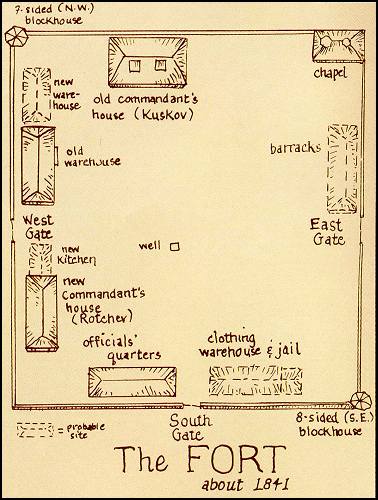 7-sided (N.W.)
blockhouse
new
ware-
house
old commandant's
house (Kuskov)
chapel
old
warehouse
barracks
West
Gate
East
Gate
well
new
Kitchen
new
Commandant's
house
(Rotchev)
officials'
quarters
clothing
warehouse & jail
= probable
site
South
Gate
8-sided (S.E.)
blockhouse
The FORT
about 1841